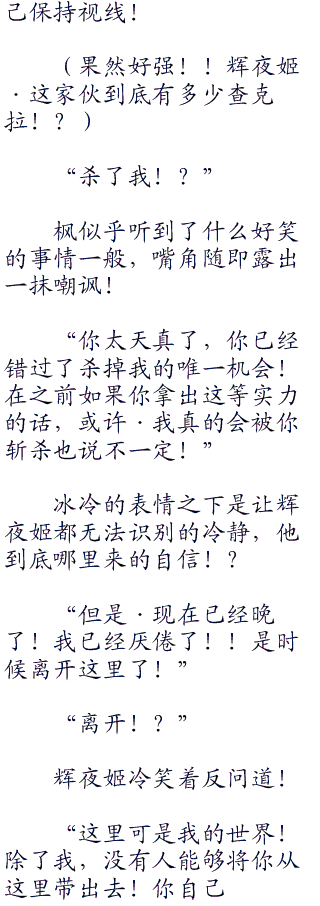 己保持视线！
（果然好强！！辉夜姬
·这家伙到底有多少查克
拉！？）
“杀了我！？”
枫似乎听到了什么好笑
的事情一般，嘴角随即露出
一抹嘲讽！
“你太天真了，你已经
错过了杀掉我的唯一机会！
在之前如果你拿出这等实力
的话，或许·我真的会被你
斩杀也说不一定！”
冰冷的表情之下是让辉
夜姬都无法识别的冷静，他
到底哪里来的自信！？
“但是·现在已经晚
了！我已经厌倦了！！是时
候离开这里了！”
“离开！？”
辉夜姬冷笑着反问道！
“这里可是我的世界！
除了我，没有人能够将你从
这里带出去！你自己